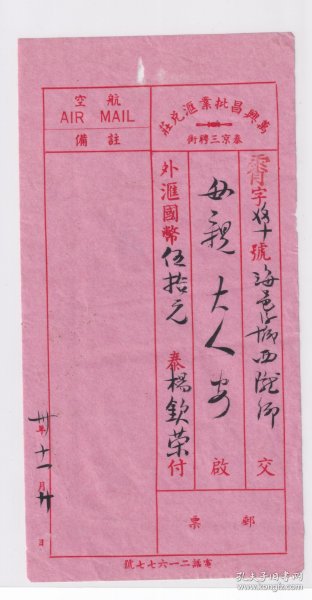 萬興昌批業滙兌莊
泰京三聘街
字 號海邑 西 鄉交
母親大人安啟
外滙國幣伍拾元 泰楊欽榮付
航空
AIR MAIL
註備
卅年十一月廿日
郵票
電話二一六七七號
孔夫子旧书网